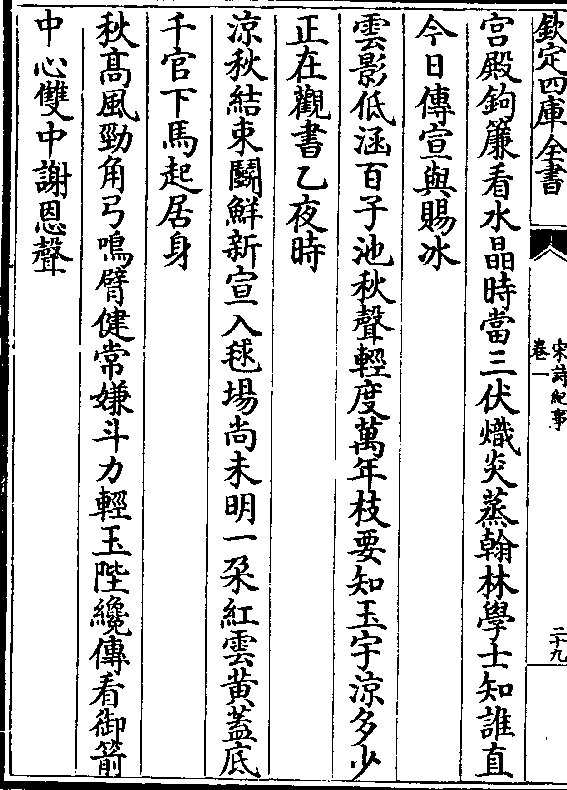 欽定四庫全書
宋詩紀事
卷一
二十九
宮殿鉤簾看水晶時當三伏熾炎蒸翰林學士知誰直
今日傳宣與賜冰
雲影低涵百子池秋聲輕度萬年枝要知玉宇涼多少
正在觀書乙夜時
涼秋結束鬭鮮新宣入毬場尚未明一朶紅雲黃蓋底
千官下馬起居身
秋髙風勁角弓鳴臂健常嫌斗力輕玉陛纔傳看御箭
中心雙中謝恩聲